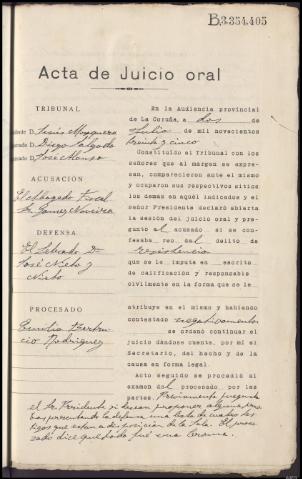 B,3.354.405
Acta de Juicio oral
TRIBUNAL
idente D. Jesús Mosquera
D. Diego Salgado
D. José Alonso
ACUSACIÓN
El Abogado Fiscal
Sr. Gómez
DEFENSA
El Letrado D.
José Nieto y
Nieto
PROCESADO
Emilio
Rodríguez
En la Audiencia provincial
de La Coruña, a dos de
Julio de mil novecientos
treinta y cinco
Constituído el Tribunal con los
señores que al márgen se expre-
san, comparecieron ante el mismo
y ocuparon sus respectivos sitios
los demas en aquél indicados y el
Señor Presidente declaró abierta
la sesión del juicio oral y pre-
guntó al acusado si se con-
fesaba reo del delito de
resistencia
que se le imputa en escrito
de calificación y responsable
civilmente en la forma que se le
atribuye en el mismo y habiendo
contestado negativamente
se ordenó continuar el
juicio dándose cuenta, por mi el
Secretario, del hecho y de la
causa en forma legal.
Acto seguido se procedió al
examen del procesado, por las
partes. Previamente pregunta
el Sr. Presidente si desean proponer alguna prue-
ba presentando la defensa una lista de cuatro tes-
tigos que estan a disposición de la Sala. El proce-
sado dice que fué una broma.